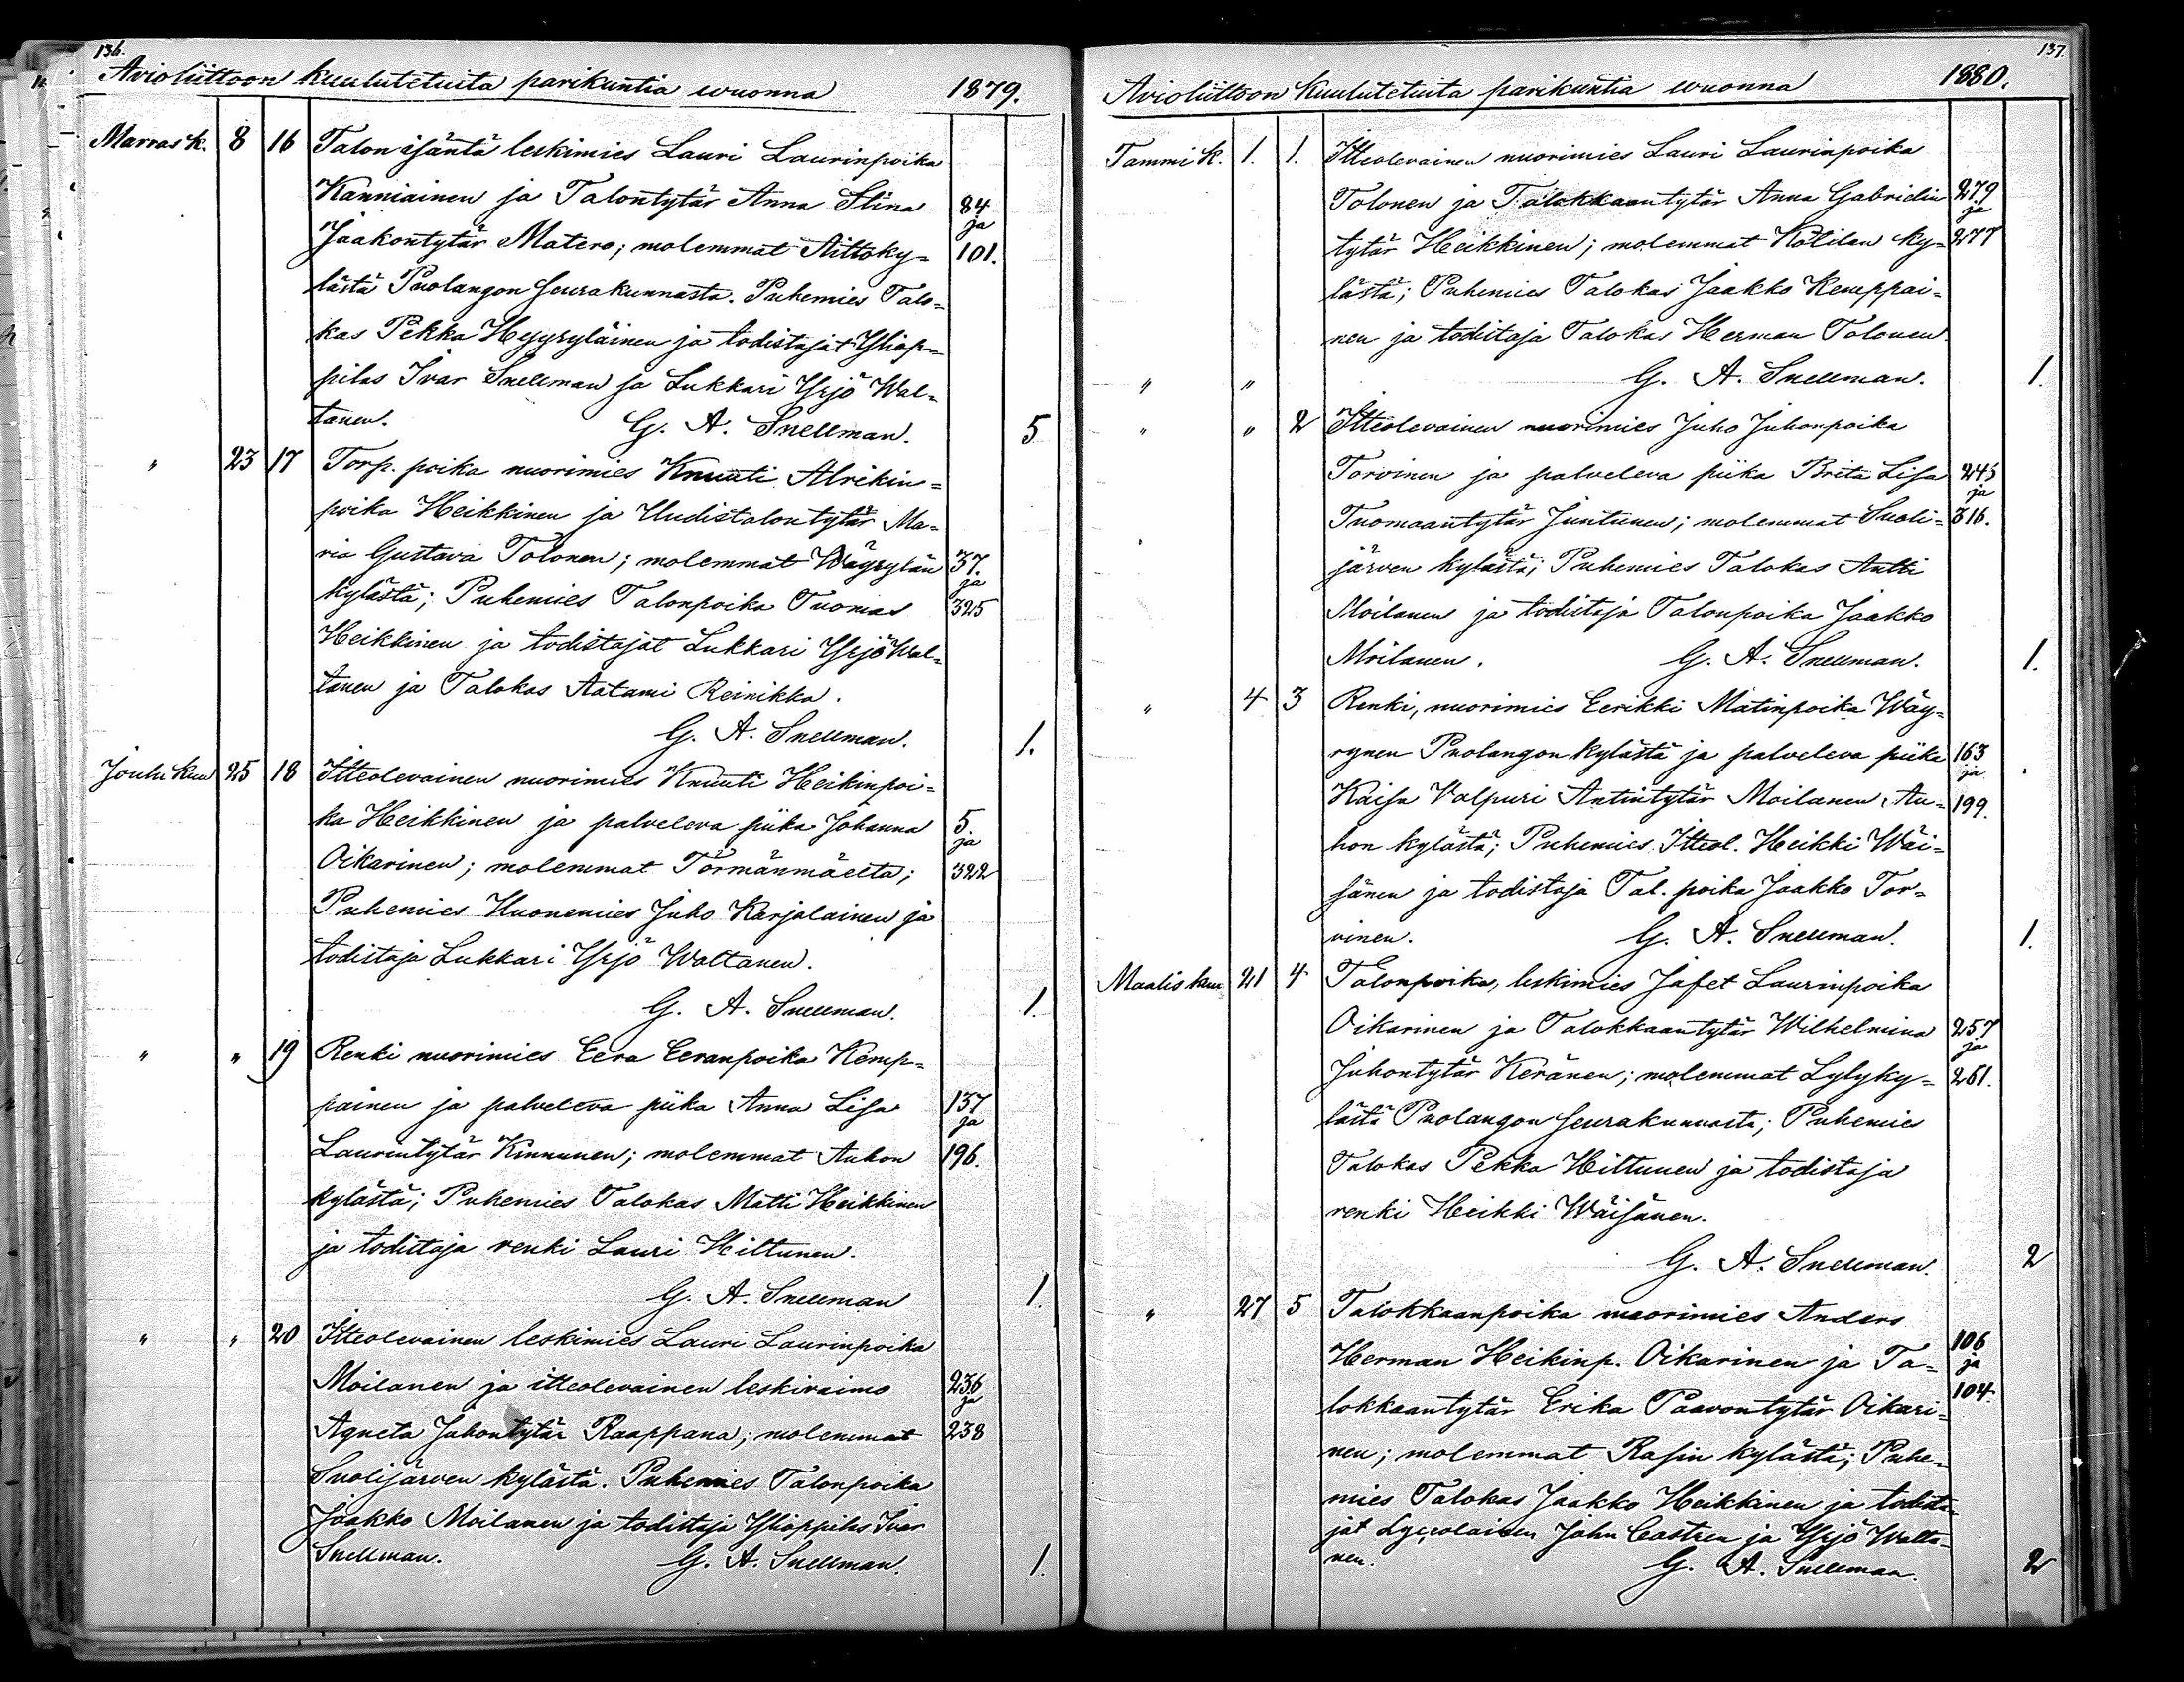 136.
Avioliittoon kuulutetuita parikuntia wuonna 1879.
Marrask. 8 16 Talon isäntä leskimies Lauri Laurinpoika
Kanniainen ja Talontytär Anna Stina 84 ja
Jaakontytär Matero; molemmat Aittoky= 101.
lästä Puolangon seurakunnasta. Puhemies Talo=
kas Pekka Hyyryläinen ja todistajat Yliop=
pilas Ivar Snellman ja Lukkari Yrjö Wal=
tanen. G. A. Snellman. 5
" 23 17 Torp. poika nuorimies Knuuti Alrikin=
poika Heikkinen ja Uudistalontytär Ma=
ria Gustava Tolonen; molemmat Wäyrylän 37. ja
kylästä; Puhemies Talonpoika Tuomas 325
Heikkinen ja todistajat Lukkari Yrjö Wal=
tanen ja Talokas Aatami Reinikka.
G. A. Snellman. 1.
Joulu kuu 25 18 Itteolevainen nuorimies Knuuti Heikinpoi=
ka Heikkinen ja palveleva piika Johanna 5. ja
Oikarinen; molemmat Törmänmäelta; 322
Puhemies Huonemies Juho Karjalainen ja
todistaja Lukkari Yrjö Waltanen.
G. A. Snellman. 1.
" " 19 Renki nuorimies Eera Eeranpoika Kemp=
painen ja palveleva piika Anna Lisa 137 ja
Laurintytär Kinnunen; molemmat Auhon 196.
kylästä; Puhemies Talokas Matti Heikkinen
ja todistaja renki Lauri Hiltunen.
G. A. Snellman 1.
" " 20 Itteolevainen leskimies Lauri Laurinpoika
Moilanen ja itteolevainen leskivaimo 236 ja
Agneta Juhontytär Raappana; molemmat 238
Suolijärven kylästä. Puhemies Talonpoika
Jaakko Moilanen ja todistaja Ylioppilas Ivar
Snellman. G. A. Snellman. 1.
137.
Avioliittoon Kuulutetuita parikuntia wuonna 1880.
Tammi k. 1. 1. Itteolevainen nuorimies Lauri Laurinpoika
Tolonen ja Talokkaantytär Anna Gabrielin 279 ja
tytär Heikkinen; molemmat Kotilan ky= 277
lästä; Puhemies Talokas Jaakko Kemppai=
nen ja todistaja Talokas Herman Tolonen.
" " G. A. Snellman. 1.
" " 2 Itteolevainen nuorimies Juho Juhonpoika
Torvinen ja palveleva piika Brita Lisa 245 ja
Tuomaantytär Juntunen; molemmat Suoli= 316.
järven kylästä; Puhemies Talokas Antti
Moilanen ja todistaja Talonpoika Jaakko
Moilanen. G. A. Snellman. 1.
" 4 3 Renki, nuorimies Eerikki Matinpoika Wäy=
rynen Puolangon kylästä ja palveleva piika 163 ja
Kaisa Valpuri Antintytär Moilanen Au= 199.
hon kylästä; Puhemies Itteol. Heikki Wäi=
sänen ja todistaja Tal. poika Jaakko Tor=
vinen. G. A. Snellman. 1.
Maalis kuu 21 4 Talonpoika, leskimies Jafet Laurinpoika
Oikarinen ja Talokkaantytär Wilhelmina 257 ja
Juhontytär Keränen; molemmat Lylyky= 261.
lästä Puolangon seurakunnasta; Puhemies
Talokas Pekka Hiltunen ja todistaja
renki Heikki Wäisänen.
G. A. Snellman. 2
" 27 5 Talokkaanpoika nuorimies Anders
Herman Heikinp. Oikarinen ja Ta= 106 ja
lokkaantytär Erika Paavontytär Oikari= 104.
nen; molemmat Rasin kylästä; Puhe=
mies Talokas Jaakko Heikkinen ja todista=
jat Lyceolainen John Castren ja Yrjö Walta=
nen. G. A. Snellman. 2